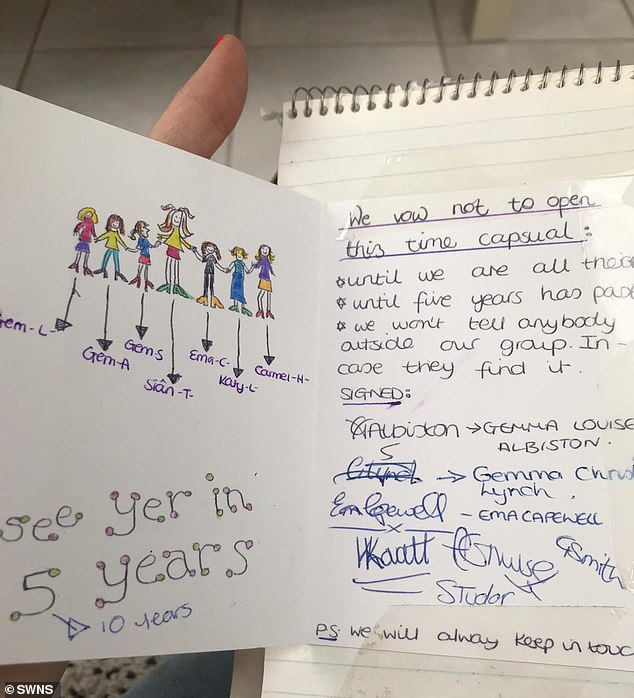 Gem-L-
Gem-A
Gem-S
Siân-T-
Ema-C-
Katy-L-
Carmel-H-
see yer in
5 years
10 years
We vow not to open
this time capsual:
until we are all
until five years has
we won't tell anybody
outside our group. In-
case they find it.
SIGNED:
GAlbiston → GEMMA LOUISE
ALBISTON.
5
→ Gemma
Lynch.
Em Capewell - EMA CAPEWELL
GSmith
STudor
PS: we will alway keep in touc
© SWNS